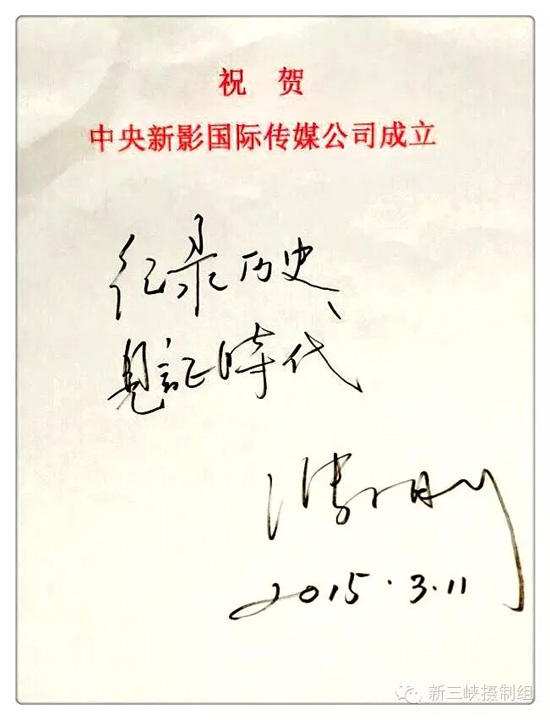 祝 贺
中央新影国际传媒公司成立
纪录历史、
見証時代
2015.3.11
新三峡摄制组